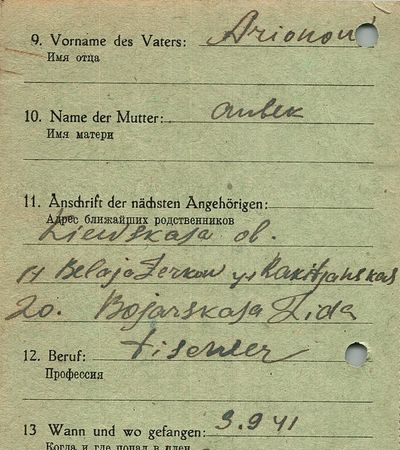 9. Vorname des Vaters:
Имя отца
10. Name der Mutter:
Имя матери
11. Anschrift der nächsten Angehörigen:
Адрес ближайших родственников
Kiewskaja ob.
Belaja Zerkow ul Rakitjanskaja
20. Bojarskaja Lida
12. Beruf: Tischler
Профессия
13 Wann und wo gefangen: 3.9 41
Когда и где попал в плен